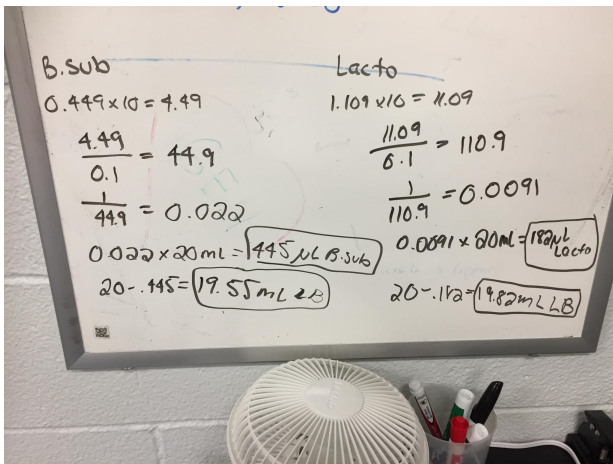 B.sub
0.449 x 10 = 4.49
4.49
0.1
= 44.9
1
44.9
= 0.022
0.022 x 20mL = 445 µL B.sub
20 - .445 = 19.55mL LB
Lacto
1.109 x10 = 11.09
11.09
0.1
= 110.9
1
110.9
= 0.0091
0.0091 x 20mL = 182µL
Lacto
20 - .182 = 19.82mL LB